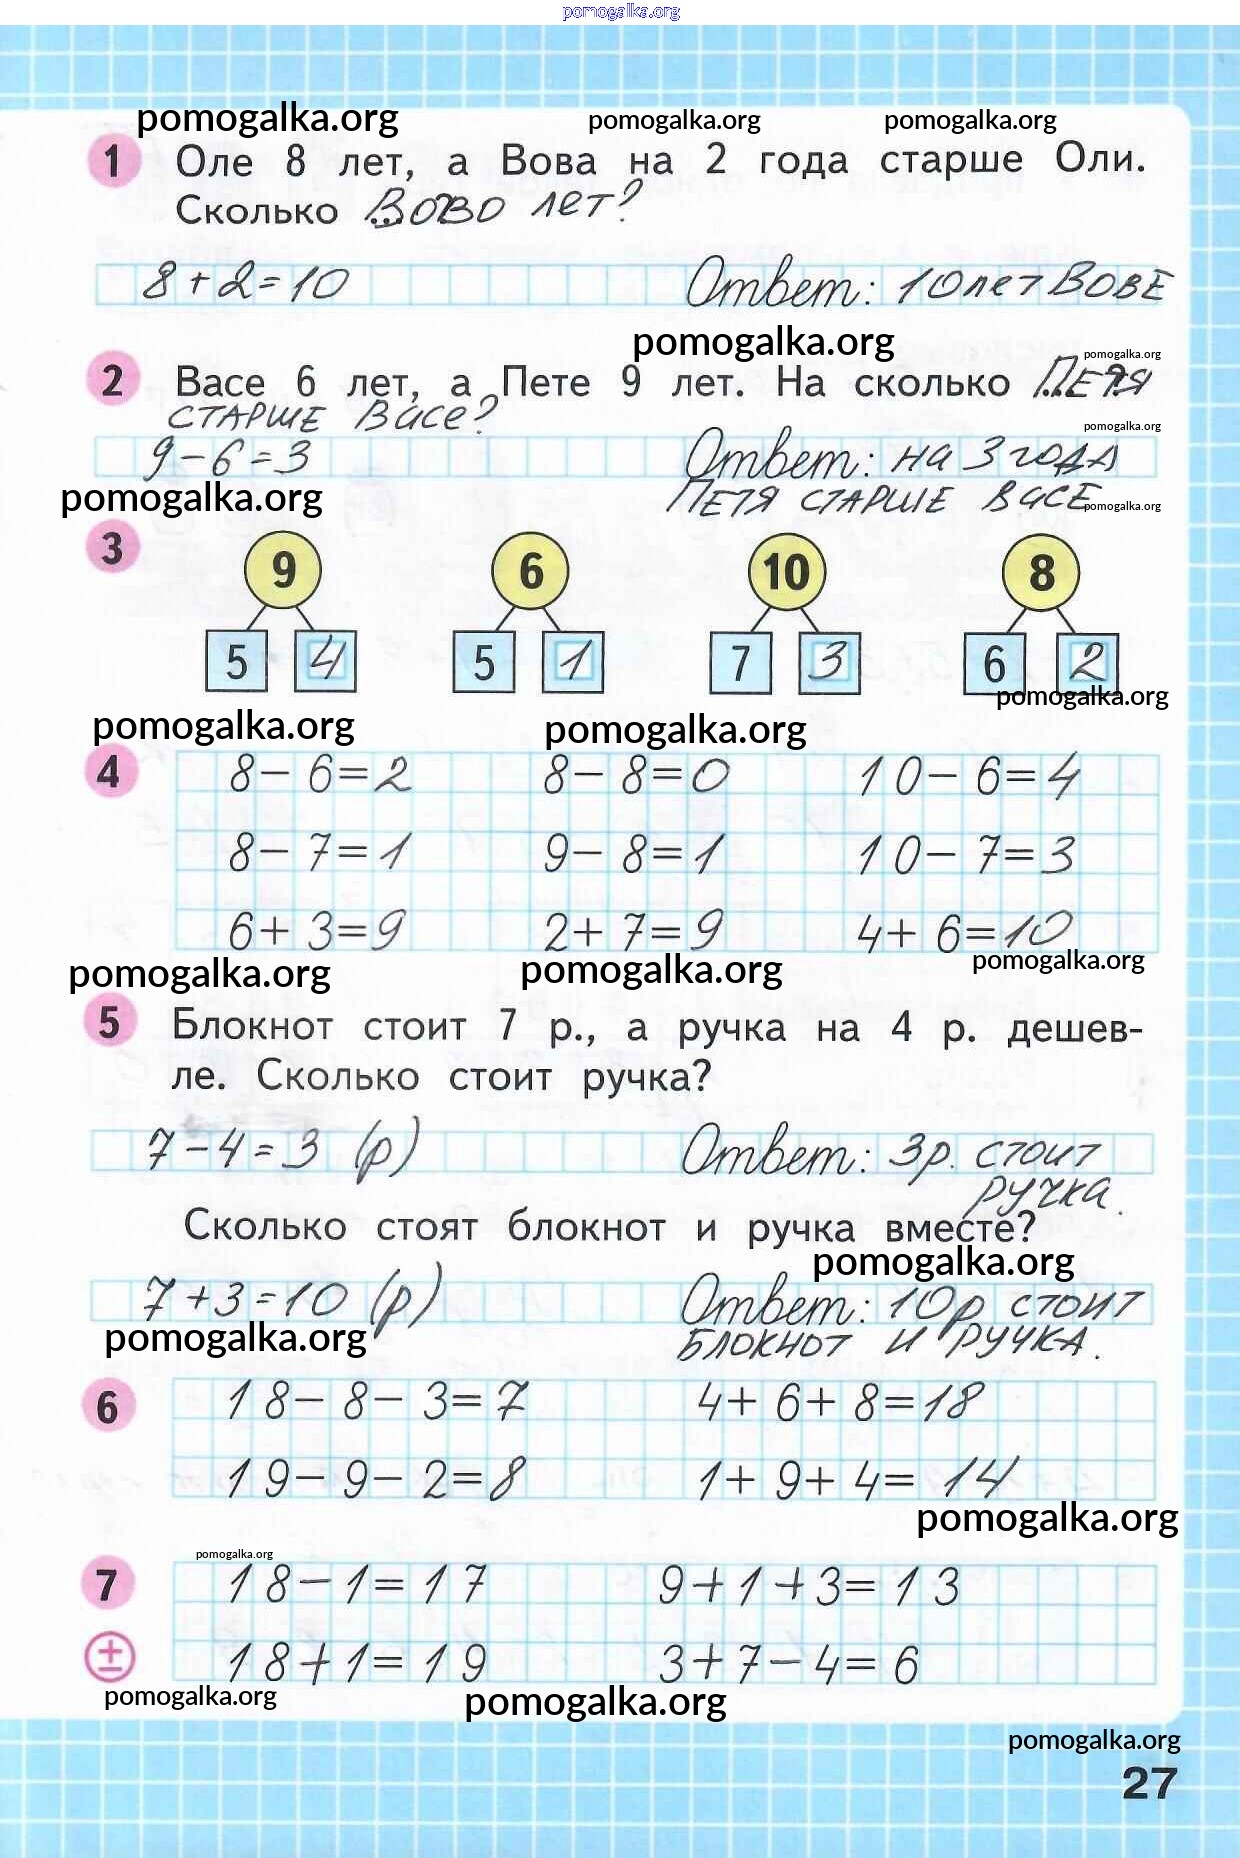 pomogalka.org
pomogalka.org pomogalka.org pomogalka.org
1 Оле 8 лет, а Вова на 2 года старше Оли.
Сколько Вово лет?
8+2=10 Ответ: 10 лет ВОВЕ
pomogalka.org
pomogalka.org
2 Васе 6 лет, а Пете 9 лет. На сколько ПЕТЯ
СТАРШЕ Васе?
pomogalka.org
9-6=3 Ответ: на 3 года
pomogalka.org ПЕТЯ СТАРШЕ ВАСЕ pomogalka.org
3 9 6 10 8
5 4 5 1 7 3 6 2
pomogalka.org
pomogalka.org pomogalka.org
4 8-6=2 8-8=0 10-6=4
8-7=1 9-8=1 10-7=3
6+3=9 2+7=9 4+6=10
pomogalka.org pomogalka.org pomogalka.org
5 Блокнот стоит 7 р., а ручка на 4 р. дешев-
ле. Сколько стоит ручка?
7-4=3 (р) Ответ: 3р. стоит
ручка.
Сколько стоят блокнот и ручка вместе?
pomogalka.org
7+3=10 (р) Ответ: 10р стоит
pomogalka.org БЛОКНОТ И РУЧКА.
6 18-8-3=7 4+6+8=18
19-9-2=8 1+9+4=14
pomogalka.org
pomogalka.org
7 18-1=17 9+1+3=13
± 18+1=19 3+7-4=6
pomogalka.org pomogalka.org
pomogalka.org
27